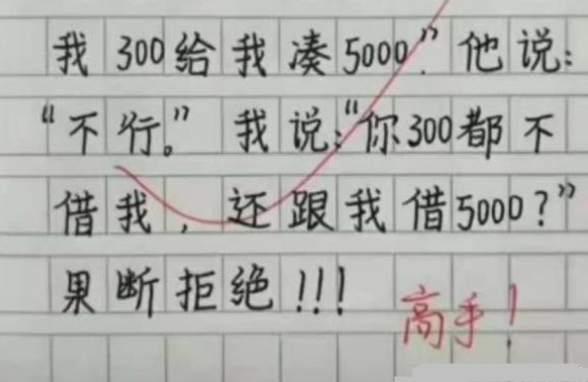 我300给我凑5000”他说：
“不行。”我说：“你300都不
借我，还跟我借5000？”
果断拒绝！！！
高手！